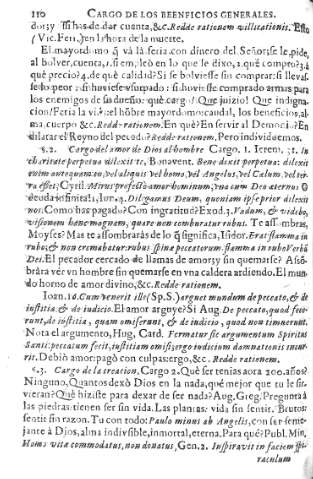 110 CARGO DE LOS BEENFICIOS GENERALES.
dor;y assi has de dar cuenta,&c. Redde rationem villicationis. Esto
(Vic. Fer.)en la hora de la muerte.
El mayordomo q̃ và là feria con dinero del Señor, se le pide,
al bolver, cuenta, i. si empleò en lo que le dixo, i. què comprò? à
què precio? de què calidad? Si se bolviesse sin comprar; si lleva-
se lo peor: si huviesse vsurpado: si huviesse comprado armas para
los enemigos de su dueño: què cargo! Què juizio! Que indigna-
cion! Feria la vida: el hõbre mayordomo: caudal, los beneficios, al-
ma, cuerpo &c. Redd. rationem. En què? En servir al Demonio? En
dilatar el Reyno del pecado? Redde rationem. Pero individuemos.
§.2. Cargo del amor de Dios al hombre Cargo. 1. Ierem. 31. In
charitate perpetua dilexit te, Bonavent. Bene dexit perpetua: dilexit
enim antequam tu, vel aliquis vel homo, vel Angelus, vel Cælum, vel ter-
ra esset; Cyril. Mirus profectò amor hominum; vna cum Deo aternus!
deuda infinita! 1. Ior. 4. Diligamus Deum, quoniam ipse prior dilexit
nos. Como has pagado? Con ingratitud? Exod. 3. Vadam, & videbo,
visionem hanc magnam, quare non comburatur rubus. Te assombras,
Moyses? Mas te assombraràs de lo q̃ significa, Isidor. Erat flamma in
rubo; & non cremabatur rubus spina peccatorum. flamma in rubo Verbũ
Dei. El pecador cercado de llamas de amor, y sin quemarse? Asõ-
bràra vèr vn hombre sin quemarse en vna caldera ardiendo. El mun-
do horno de amor divino, &c. Redde rationem.
Ioan. 16. Cum venerit ille (Sp. S.) arguet mundum de peccato, & de
iustitia & de iudicio. El amor arguye? Si Aug. De peccato, quod fece-
runt, de iustitia, quam omiserunt, & de iudicio, quod non timuerunt.
Nota el argumento, Hug. Card. Formatur sic argumentum Spiritus
Sancti: peccatum fecit, iustitiam omisit; ergo iudicium damnationis incur-
rit. Debiò amor: pagò con culpas: ergo, &c. Redde rationem.
§.3. Cargo de la creacion. Cargo 2. Què ser tenias aora 200. años?
Ninguno, Quantos dexò Dios en la nada, què mejor que tu le sir-
vieran? Què hiziste para dexar de ser nada? Aug, Greg. Pregunta à
las piedras: tienen ser sin vida. Las plantas: vida sin sentir. Brutos:
sentir sin razon. Tu con todo: Paulo minus ab Angelis, con ser seme-
jante à Dios, alma indivisible, inmortal, eterna. Para què? Publ. Min,
Homo vitæ commodatus, non donatus, Gen. 2. Inspiravit in faciem spi-
raculum